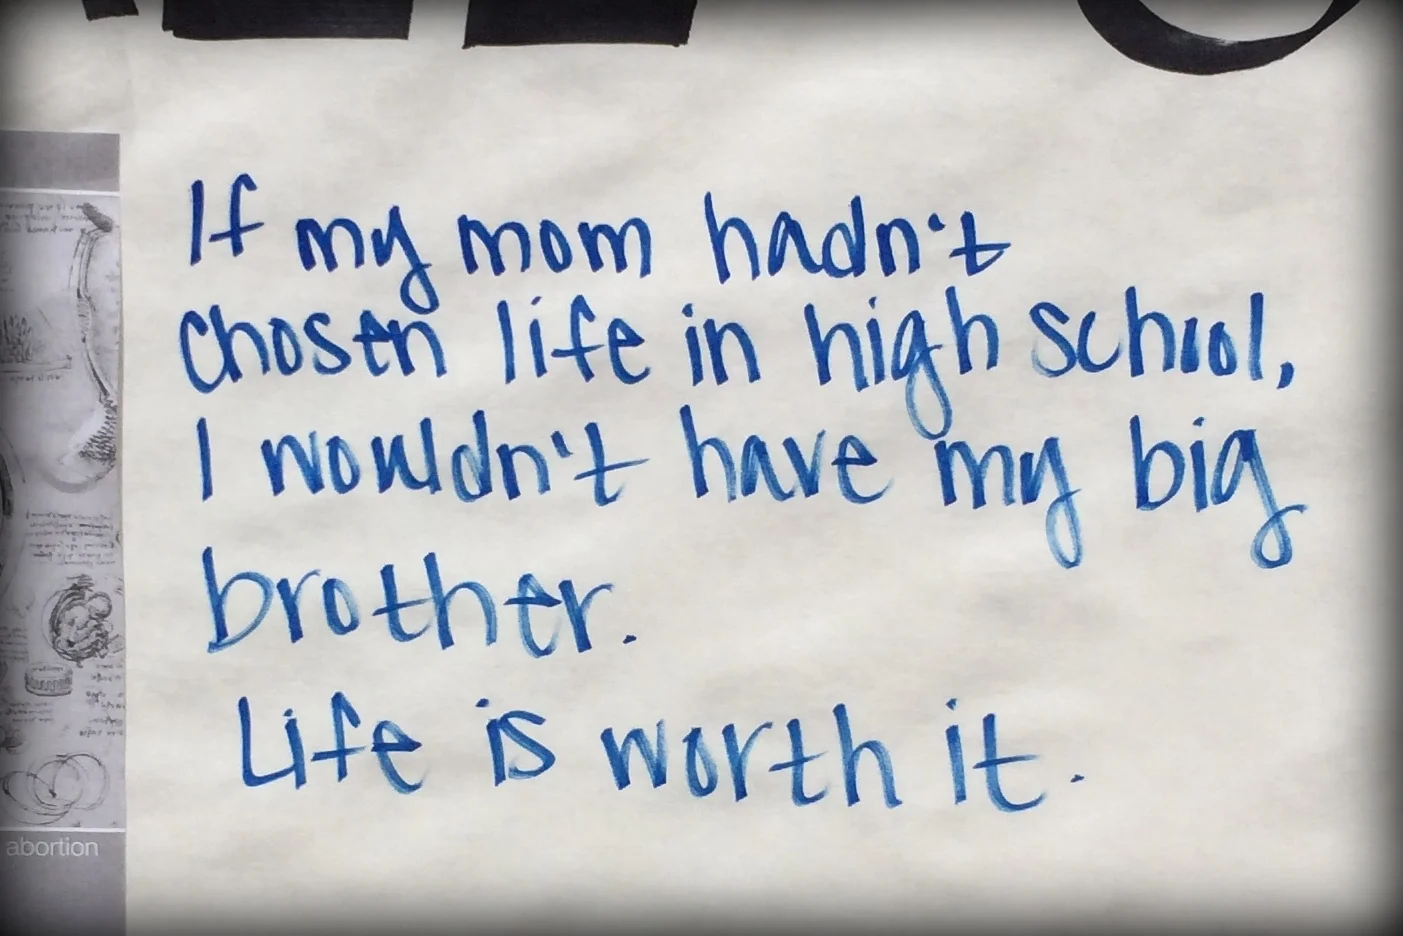 If my mom hadn't
chosen life in high school,
I wouldn't have my big
brother.
Life is worth it.
abortion